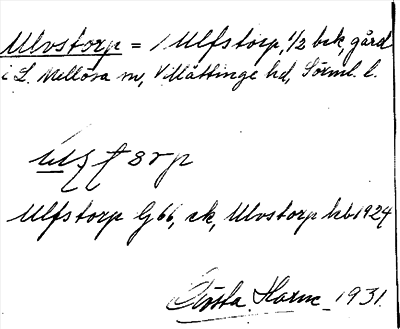 Ulvstorp = 1 Ulfstorp, 1/2 bsk, gård
i L. Mellösa sn, Villåttinge hd, Sörml. l.
Ulfstorp G 66, sk, Ulvstorp kb 1924
Gösta Harne 1931.